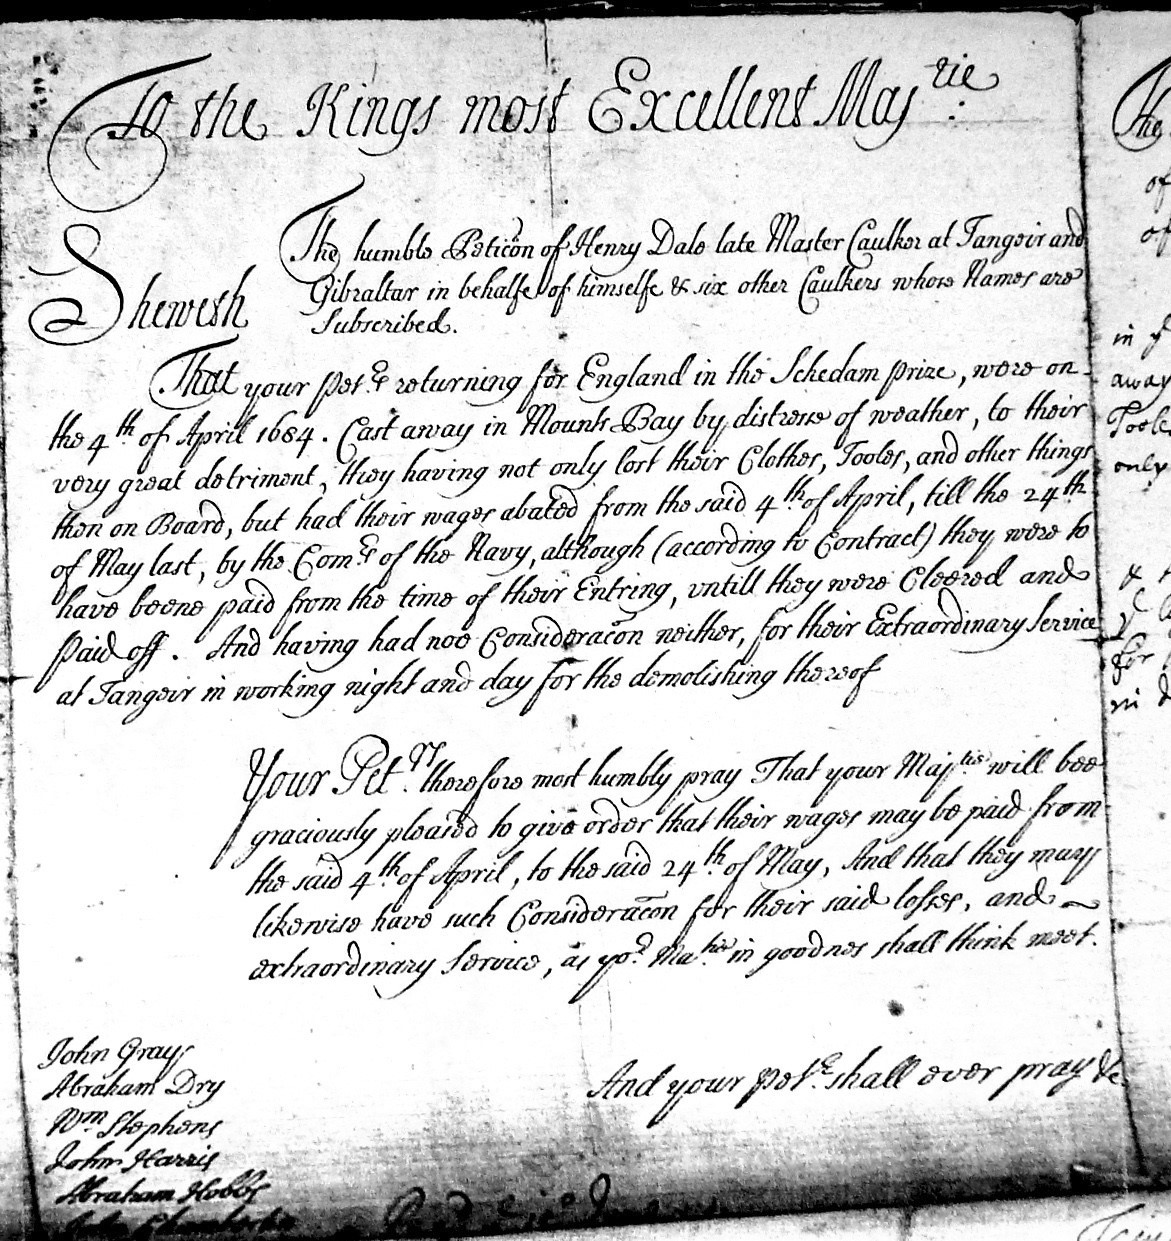 To the Kings most Excellent Maj:tie
The humble Peticon of Henry Dale late Master Caulker at Tangeir and
Gibraltar in behalfe of himselfe & six other Caulkers whose Names are
Subscribed.
Sheweth
That your Pet:rs returning for England in the Schedam prize, were on
the 4th of April 1684. Cast away in Mounts Bay by distresse of weather, to their
very great detriment, they having not only lost their Clothes, Tooles, and other things
then on Board, but had their wages abated from the said 4th of April, till the 24th
of May last, by the Com:rs of the Navy, although (according to Contract) they were to
have beene paid from the time of their Entring, vntill they were Cleered and
Paid off. And having had noe Consideracon neither, for their Extraordinary Service
at Tangeir in working night and day for the demolishing thereof
Your Pet:rs therefore most humbly pray That your Maj:tie will bee
graciously pleased to give order that their wages may be paid from
the said 4th of April, to the said 24th of May, And that they may
likewise have such Consideracon for their said losses, and
extraordinary Service, as yo:r Ma:tie in goodnes shall think meet.
And your Pet:rs shall ever pray &c
John Gray
Abraham Dry
Wm Stephens
John Harris
Abraham Hobbs
John Chamberlin
of
of
in
away
Toole
only
&
for
in